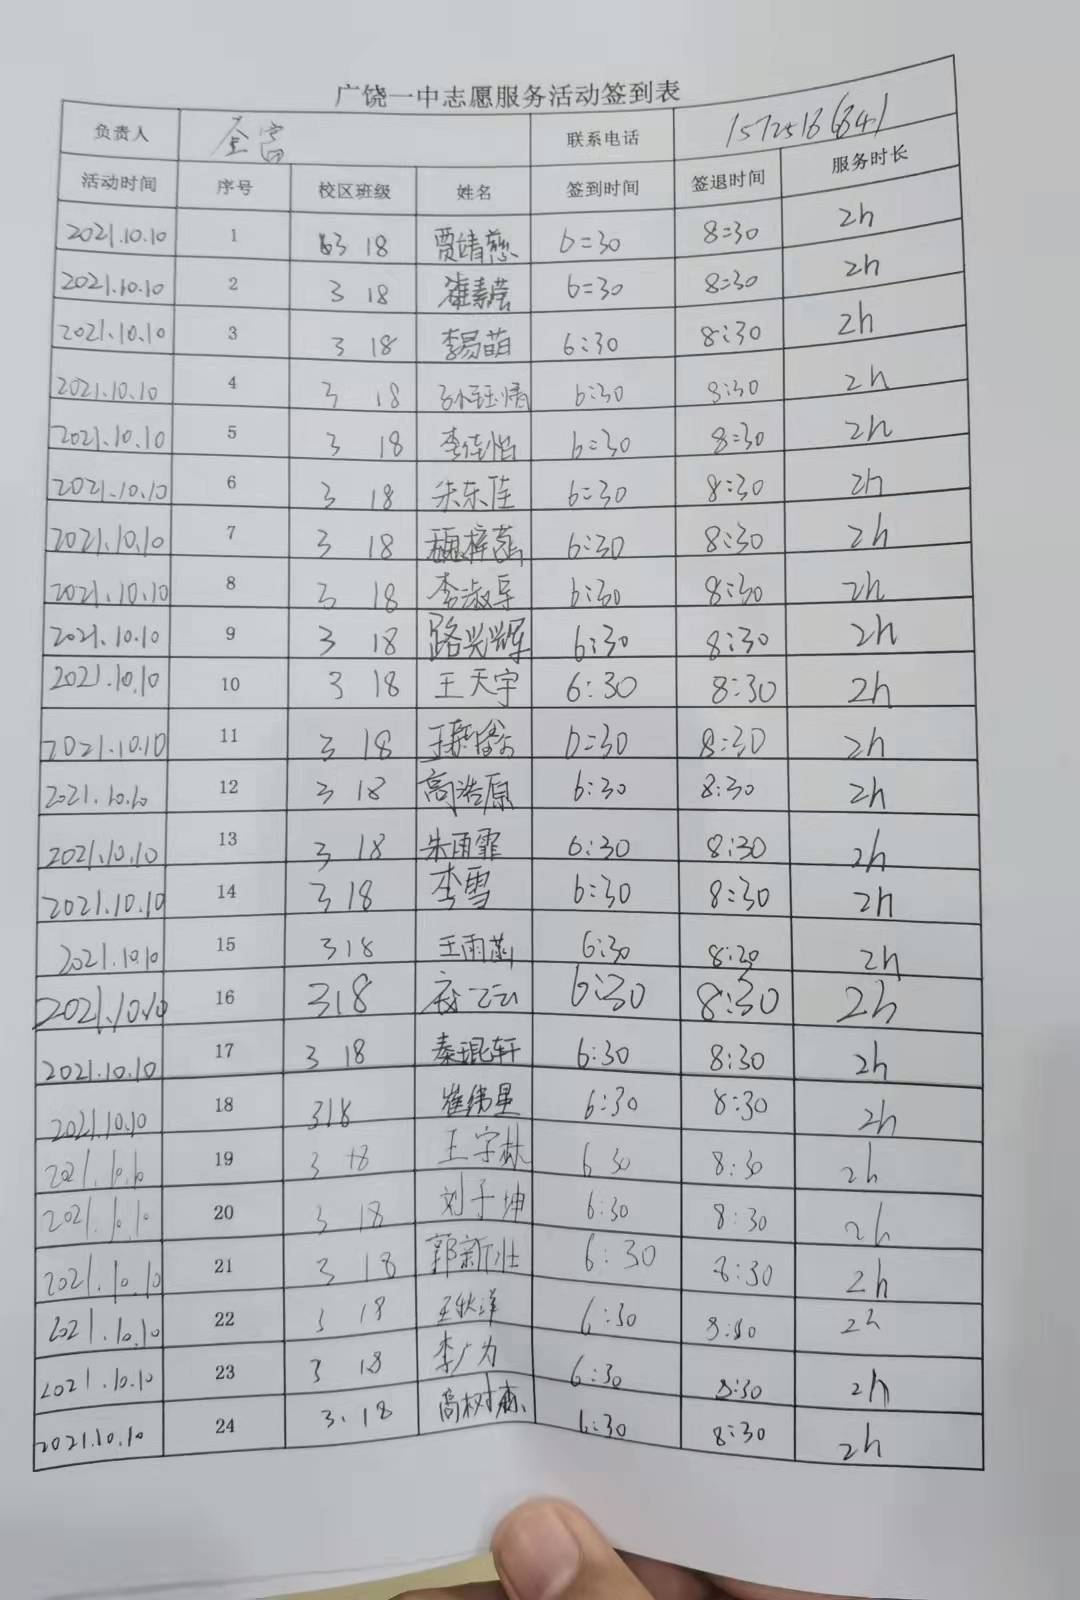 广饶一中志愿服务活动签到表
负责人 联系电话
活动时间 序号 校区班级 姓名 签到时间 签退时间 服务时长
2021.10.10 1 3 18 6:30 8:30 2h
2021.10.10 2 3 18 6:30 8:30 2h
2021.10.10 3 3 18 李易萌 6:30 8:30 2h
2021.10.10 4 3 18 孙钰倩 6:30 8:30 2h
2021.10.10 5 3 18 李佳怡 6:30 8:30 2h
2021.10.10 6 3 18 朱东佳 6:30 8:30 2h
2021.10.10 7 3 18 6:30 8:30 2h
2021.10.10 8 3 18 6:30 8:30 2h
2021.10.10 9 3 18 路兴辉 6:30 8:30 2h
2021.10.10 10 3 18 王天宇 6:30 8:30 2h
2021.10.10 11 3 18 6:30 8:30 2h
2021.10.10 12 3 18 高浩原 6:30 8:30 2h
2021.10.10 13 3 18 朱雨霏 6:30 8:30 2h
2021.10.10 14 3 18 李雪 6:30 8:30 2h
2021.10.10 15 3 18 6:30 8:30 2h
2021.10.10 16 3 18 6:30 8:30 2h
2021.10.10 17 3 18 秦琨轩 6:30 8:30 2h
2021.10.10 18 3 18 崔纬星 6:30 8:30 2h
2021.10.10 19 3 18 王宇赫 6 30 8:30 2h
2021.10.10 20 3 18 刘子坤 6:30 8:30 2h
2021.10.10 21 3 18 郭新壮 6:30 8:30 2h
2021.10.10 22 3 18 王秋洋 6:30 8:30 2h
2021.10.10 23 3 18 李广为 6:30 8:30 2h
2021.10.10 24 3.18 高树森 6:30 8:30 2h